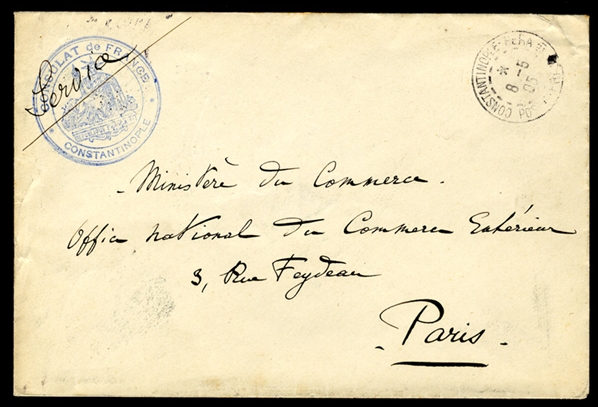 CONSULAT de FRANCE
CONSTANTINOPLE
Service
CONSTANTINOPLE-PERA
8 -5
05
Ministère du Commerce.
Office National du Commerce Extérieur
3, Rue Feydeau
- Paris -